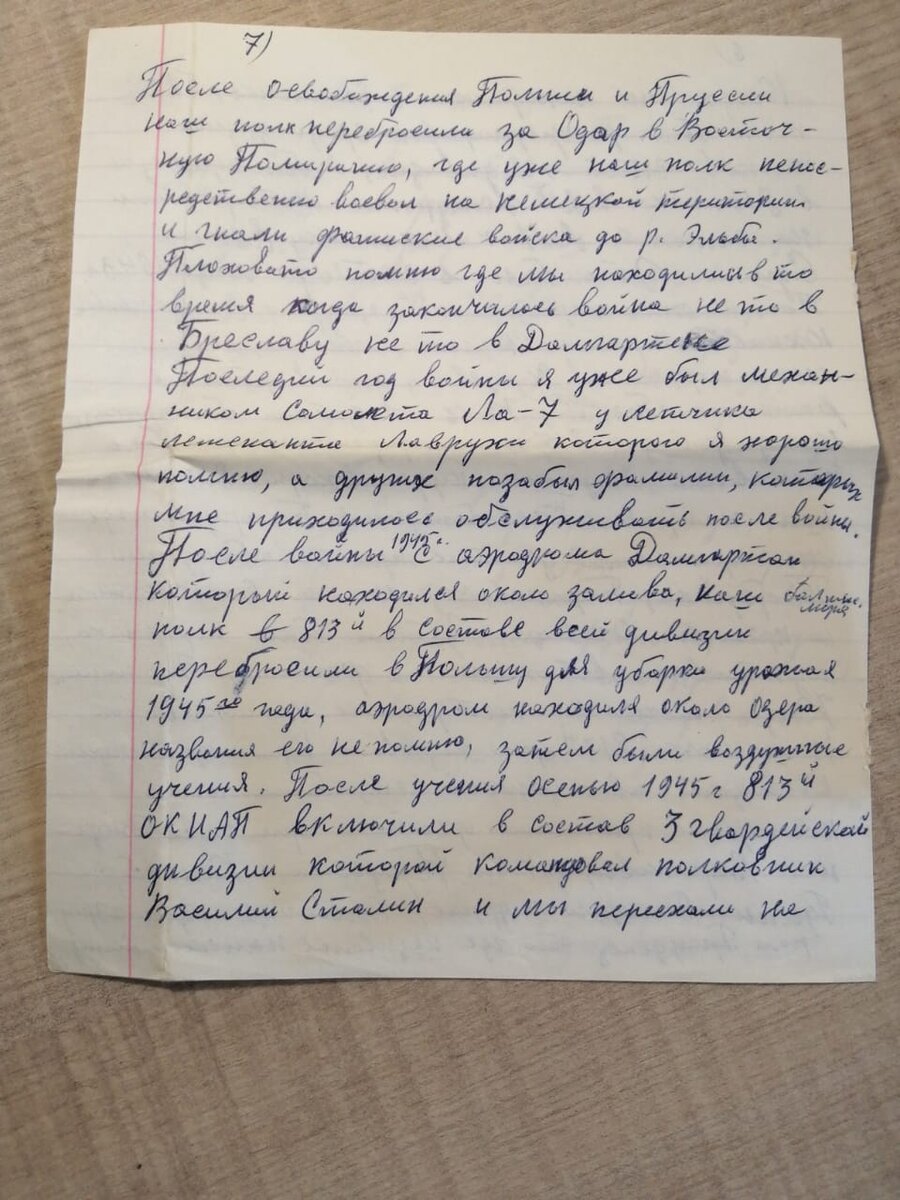 7)
После освобождения Польши и Пруссии
наш полк перебросили за Одар в Восточ-
ную Помиранию, где уже наш полк непос-
редственно воевол на немецкой територии
и гнали фашиские войска до р. Эльбы.
Плоховато помню где мы находились в то
время когда закончилось война не то в
Бреславу не то в Дамгартене
Последний год войны я уже был механ-
ником самолета Ла-7 у летчика
лейтенанта Лавружи которого я хорошо
помню, а других позабыл фамилии, которых
мне приходилось обслуживать после война.
После войны 1945 г. с аэродрома Дамгартан
который находился около залива, наш
моря
полк в 813й в составе всей дивизии
перебросили в Польшу для уборка урожая
1945го года, аэродром находился около озера
названия его не помню, затем были воздушные
учения. После учения осенью 1945 г 813й
ОКИАП включили в состав 3 гвардейской
дивизии которой командовал полковник
Василий Сталин и мы переехали на